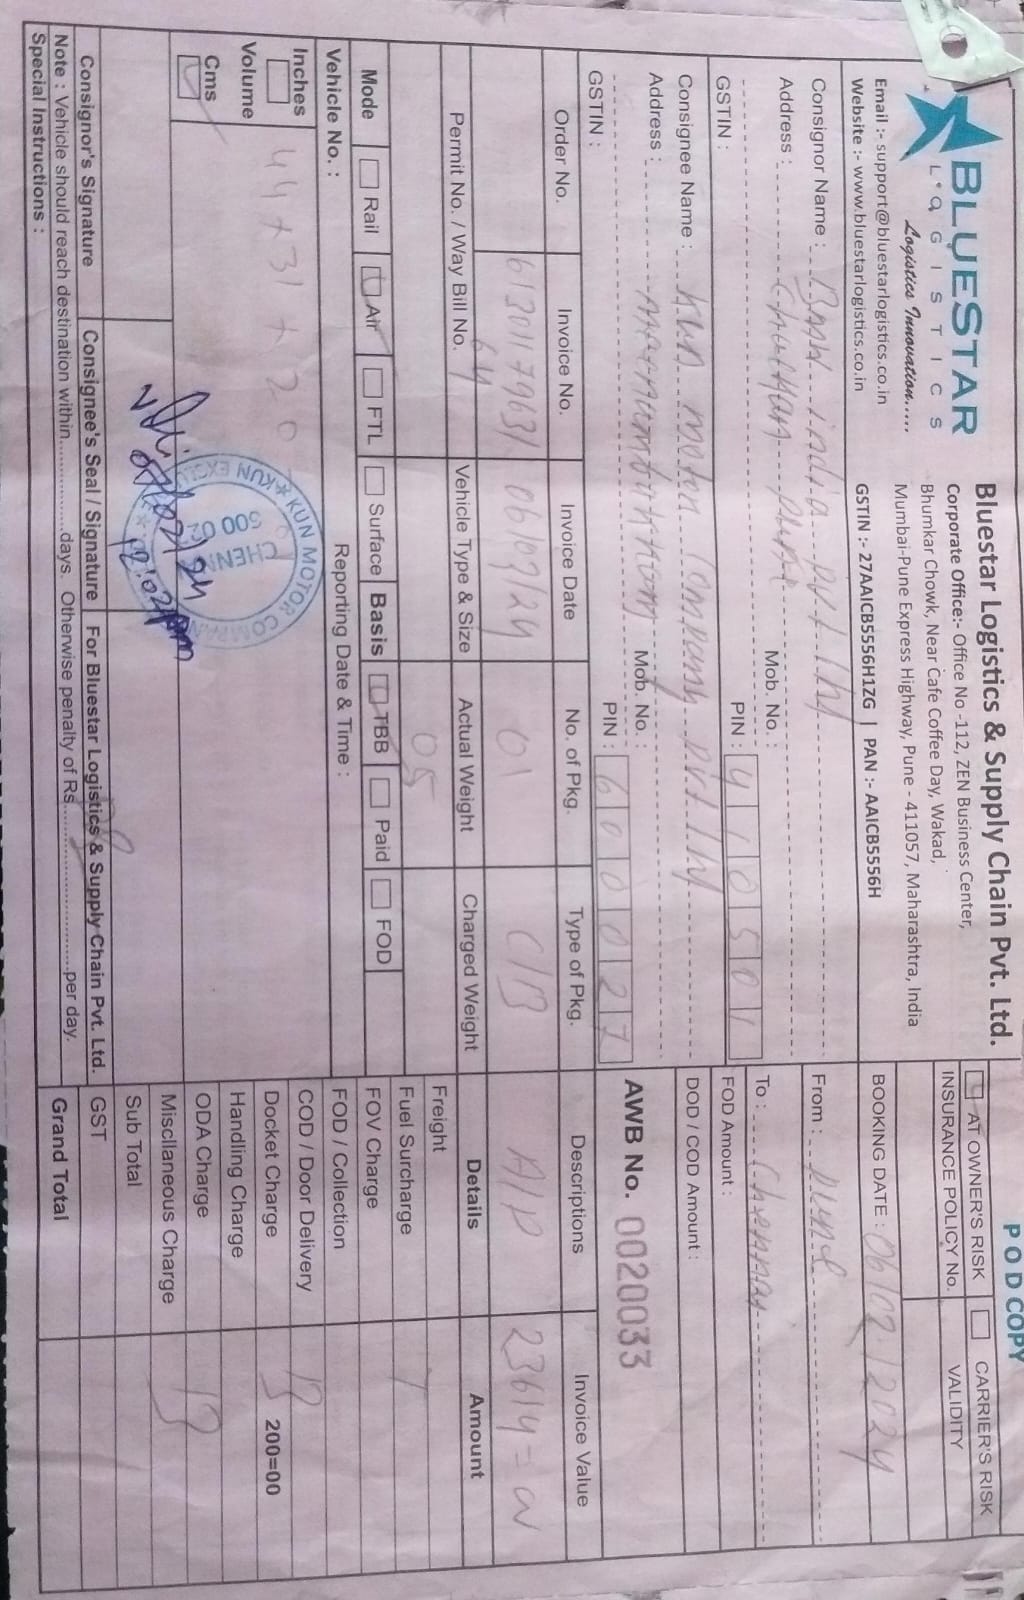 POD COPY
BLUESTAR
LOGISTICS
Logistics Innovation.....
Email :- support@bluestarlogistics.co.in
Website :- www.bluestarlogistics.co.in
Bluestar Logistics & Supply Chain Pvt. Ltd.
Corporate Office:- Office No -112, ZEN Business Center,
Bhumkar Chowk, Near Cafe Coffee Day, Wakad,
Mumbai-Pune Express Highway, Pune - 411057, Maharashtra, India
GSTIN :- 27AAICB5556H1ZG | PAN :- AAICB5556H
AT OWNER'S RISK CARRIER'S RISK
INSURANCE POLICY No. VALIDITY
BOOKING DATE : 06/02/2024
Consignor Name : BMW india pvt ltd
Address : Chachan pune
Mob. No. :
PIN : 410501
GSTIN :
From : pune
To : Chennai
FOD Amount :
DOD / COD Amount :
Consignee Name : Kun motor Company pvt ltd
Address :
Mob. No. :
PIN : 600027
GSTIN :
AWB No. 0020033
Order No. Invoice No. Invoice Date No. of Pkg. Type of Pkg. Descriptions Invoice Value
61301179631 06/02/24 01 C/B A/P 23614=00
64
Permit No. / Way Bill No. Vehicle Type & Size Actual Weight Charged Weight Details Amount
05
Freight
Fuel Surcharge T
FOV Charge
FOD / Collection
COD / Door Delivery B
Docket Charge 200=00
Handling Charge
ODA Charge B
Miscllaneous Charge
Sub Total
GST
Grand Total
Mode Rail Air FTL Surface Basis TBB Paid FOD
Vehicle No. : Reporting Date & Time :
Inches
Volume
Cms
44+31+20
KUN MOTOR COMPANY
KUN EXCLUSIVE
CHENNAI
600 027
07/02/24
12:02pm
Consignor's Signature Consignee's Seal / Signature For Bluestar Logistics & Supply Chain Pvt. Ltd.
Note : Vehicle should reach destination within................days. Otherwise penalty of Rs.............................per day.
Special Instructions :